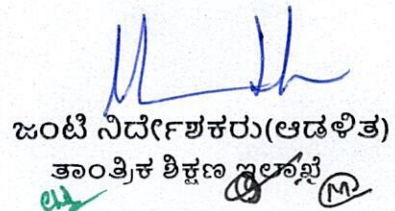 ಜಂಟಿ ನಿರ್ದೇಶಕರು(ಆಡಳಿತ)
ತಾಂತ್ರಿಕ ಶಿಕ್ಷಣ ಇಲಾಖೆ